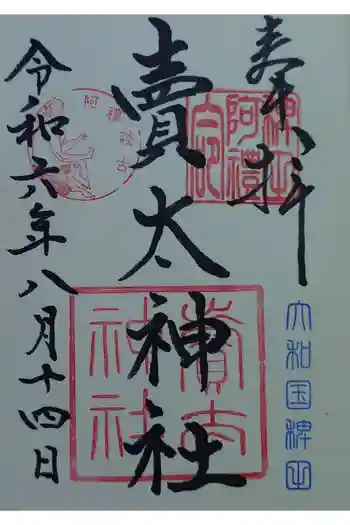 奉拝
大和国稗田
稗田阿禮
賣太神社
賣太神社
阿禮
令和六年八月十四日